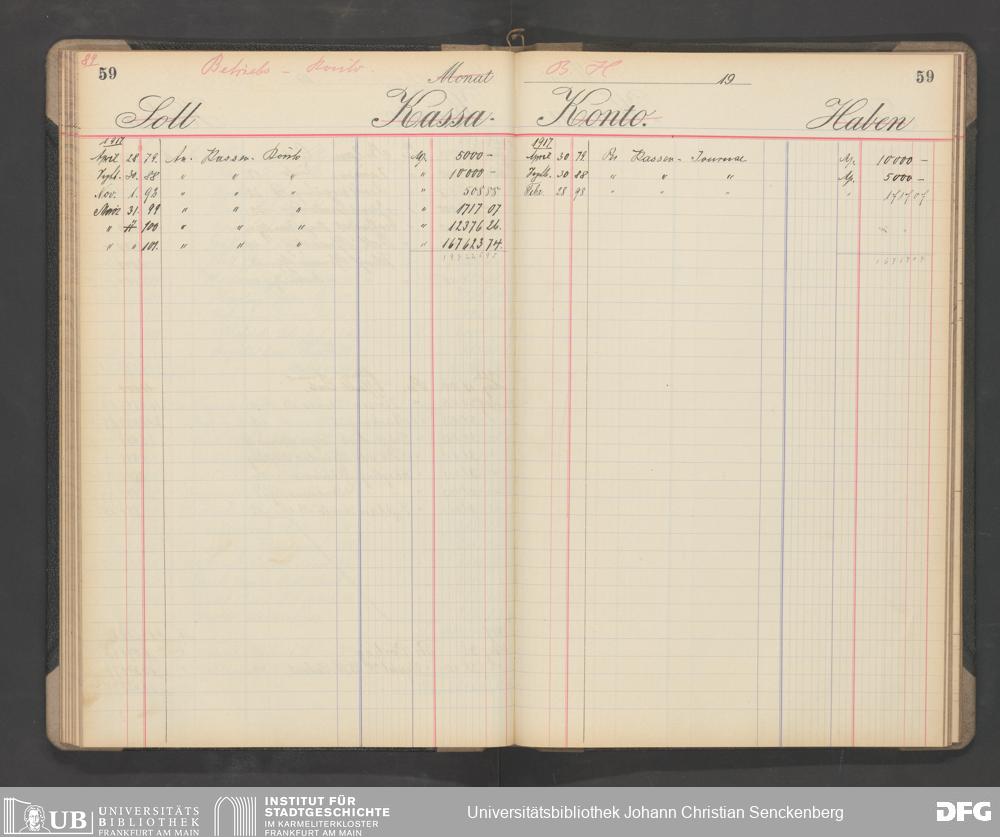 82
59
Betriebs - Konto.
Monat
Soll Kassa-
1917
April 28 79. An Kassa- Konto M. 5000 –
Sept. 30. 88 " " " " 10000 –
Nov. 1. 93 " " " " 505 55
März 31. 99 " " " " 1717 07
" " 100 " " " " 12376 26.
" " 101. " " " " 167623 74.
B. H
19
59
Konto. Haben
1917
April 30 79. Per Kassa- Journal M. 10000 –
Sept. 30 88 " " " M. 5000 –
28 98 " " " " 1717 07
UB UNIVERSITÄTS
BIBLIOTHEK
FRANKFURT AM MAIN
INSTITUT FÜR
STADTGESCHICHTE
IM KARMELITERKLOSTER
FRANKFURT AM MAIN
Universitätsbibliothek Johann Christian Senckenberg
DFG